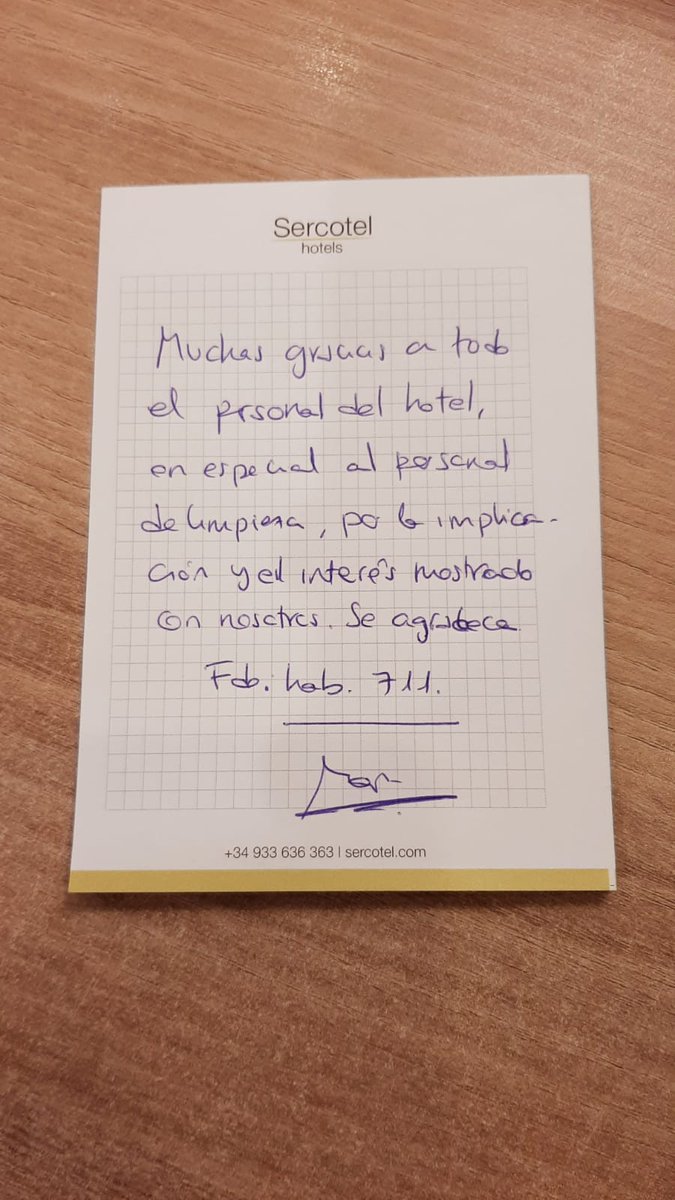 Sercotel
hotels
Muchas gracias a todo
el prsonal del hotel,
en especial al personal
de limpieza, por la implica-
ción y el interés mostrado
con nosotros. Se agradece.
Fdo. hab. 711.
+34 933 636 363 | sercotel.com